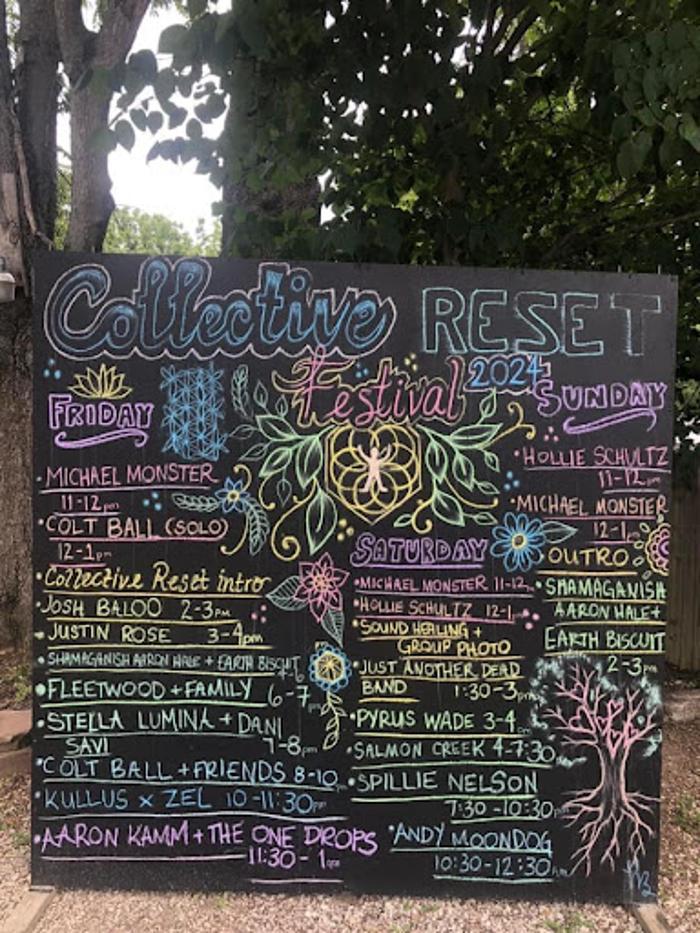 Collective RESET
Festival 2024
FRIDAY
• MICHAEL MONSTER
11-12pm
• COLT BALL (SOLO)
12-1pm
• Collective Reset intro
• JOSH BALOO 2-3PM
• JUSTIN ROSE 3-4pm
• SHAMAGANISH AARON HALE + EARTH BISCUIT
4-6
• FLEETWOOD + FAMILY 6-7pm
• STELLA LUMINA + DANI
SAVI 7-8pm
• COLT BALL + FRIENDS 8-10pm
• KULLUS x ZEL 10-11:30pm
• AARON KAMM + THE ONE DROPS
11:30-1am
SATURDAY
• MICHAEL MONSTER 11-12pm
• HOLLIE SCHULTZ 12-1pm
• SOUND HEALING +
GROUP PHOTO
• JUST ANOTHER DEAD
BAND 1:30-3pm
• PYRUS WADE 3-4pm
• SALMON CREEK 4-7:30pm
• SPILLIE NELSON
7:30-10:30pm
• ANDY MOONDOG
10:30-12:30am
SUNDAY
• HOLLIE SCHULTZ
11-12pm
• MICHAEL MONSTER
12-1pm
OUTRO
• SHAMAGANISH
AARON HALE +
EARTH BISCUIT
2-3pm